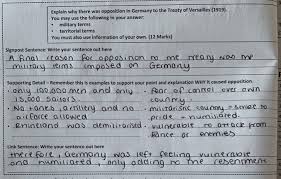 Explain why there was opposition in Germany to the Treaty of Versailles (1919).
You may use the following in your answer:
• military terms
• territorial terms
You must also use information of your own. (12 Marks)
Signpost Sentence: Write your sentence out here
A final reason for opposition to the Treaty was the
military terms imposed on Germany
Supporting Detail - Remember this is examples to support your point and explanation WHY it caused opposition.
• only 100,000 men and only 15,000 sailors.
• No tanks, army and no airforce allowed
• Rhineland was demilitarised.
- fear of control over own country.
- militaristic country = smite to pride = humiliated.
- vulnerable to attack from France or enemies
Link Sentence: Write your sentence out here
Therefore, Germany was left feeling vulnerable
and humiliated, only adding to the resentment